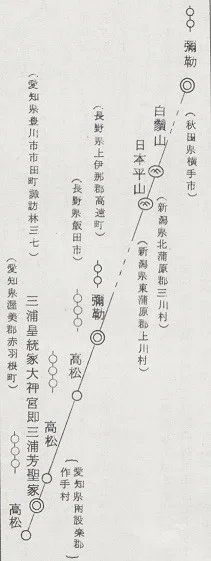 彌勒
（秋田県横手市）
白鬚山
（新潟県北蒲原郡三川村）
日本平山
（新潟県東蒲原郡上川村）
彌勒
（長野県上伊那郡高遠町）
（長野県飯田市）
高松
（愛知県南設楽郡作手村）
高松
三浦皇統家大神宮即三浦芳聖家
（愛知県豊川市市田町諏訪林三七）
高松
（愛知県渥美郡赤羽根町）